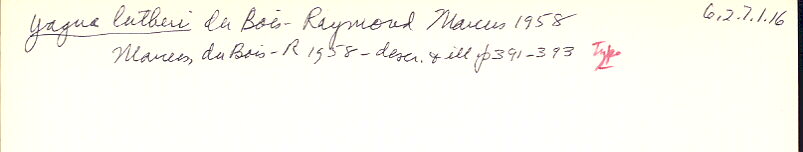 Yagua lutheri du Bois-Raymond Marcus 1958 6.2.7.1.16
Marcus, du Bois-R 1958 - descr. & ill p391-393 Type